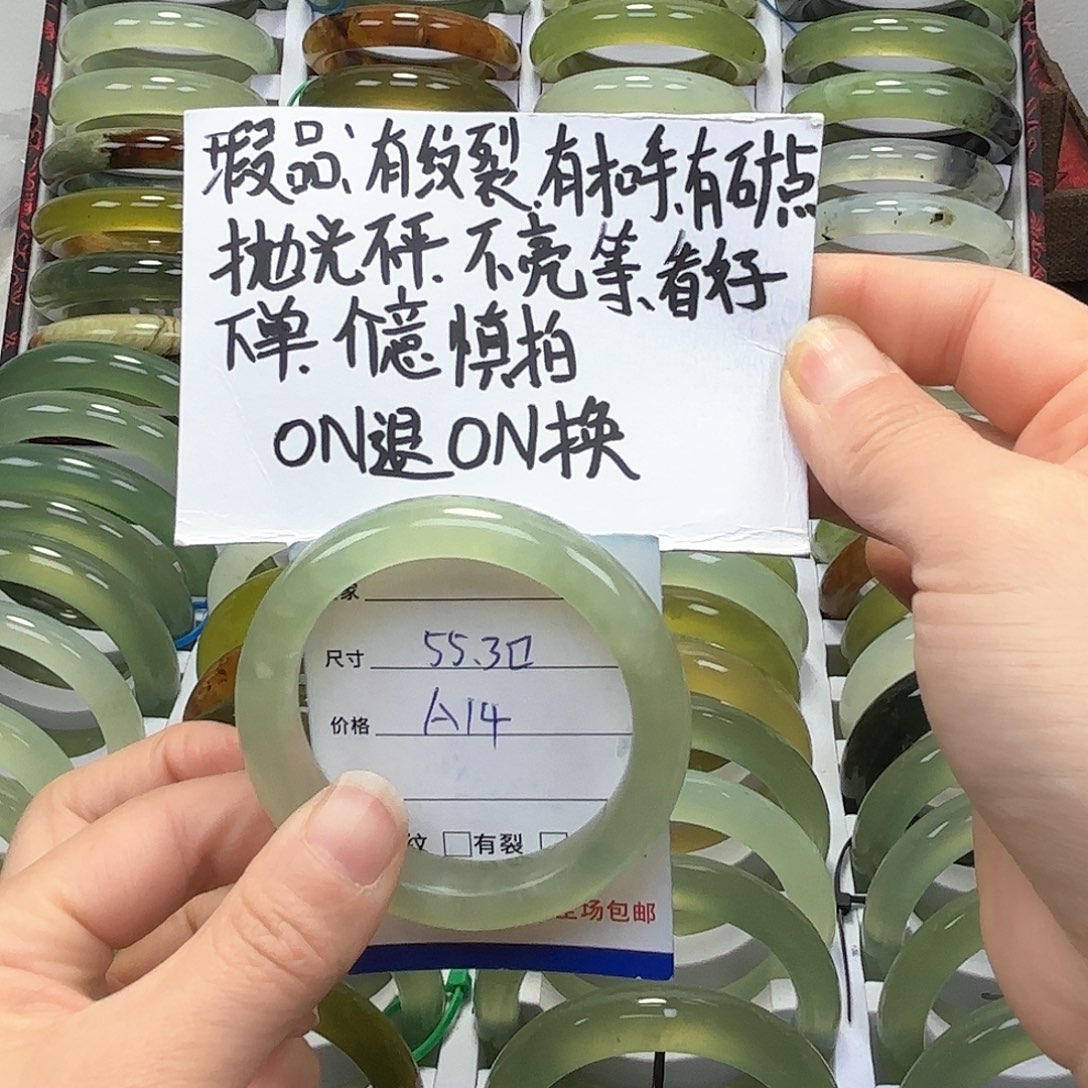 瑕品、有纹裂.有扣手.有石点
抛光不平.不亮等.看好
下单.介意.慎拍
ON退ON换
家
尺寸 55.3口
价格 A14
纹 □有裂 □
全场包邮